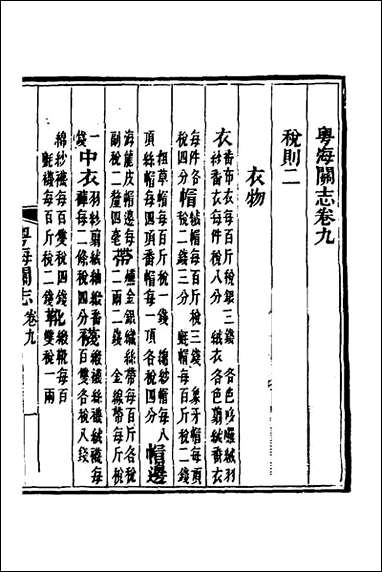 粵海關志卷九
稅則二
衣物
衣 番布衣每百斤稅銀三錢 各色哆囉絨羽
紗番衣每件稅八分 絨衣各色剪絨番衣
每件各 帽 絨帽每百斤稅三錢 象牙帽每頂
稅四分 稅二錢三分 氊帽每百斤稅二錢
粗草帽每百斤稅一錢 緦紗帽每八
頂 絲帽每四頂番帽每一頂各稅四分 帽邊
海龍皮帽邊每 帶 金銀絨絲帶每百斤各稅
副稅二釐四毫 二兩二錢 金線帶每斤稅
一 中衣 羽紗剪絨紬緞番 襪 緞襪絲襪絨襪每
錢 褲每二條稅四分 百雙各稅八錢
綿紗襪每百雙稅四錢 靴 緞靴每百
氊襪每百斤稅二錢 雙稅一兩
粵海關志 卷九